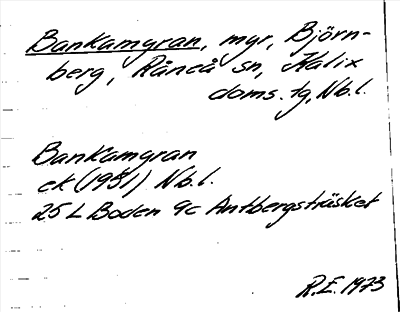 Bankamyran, myr, Björn-
berg, Råneå sn, Kalix
doms. tg, Nb.l.
Bankamyran
ek (1951) Nb.l.
25 L Boden 9c Antbergsträsket
R.E. 1973